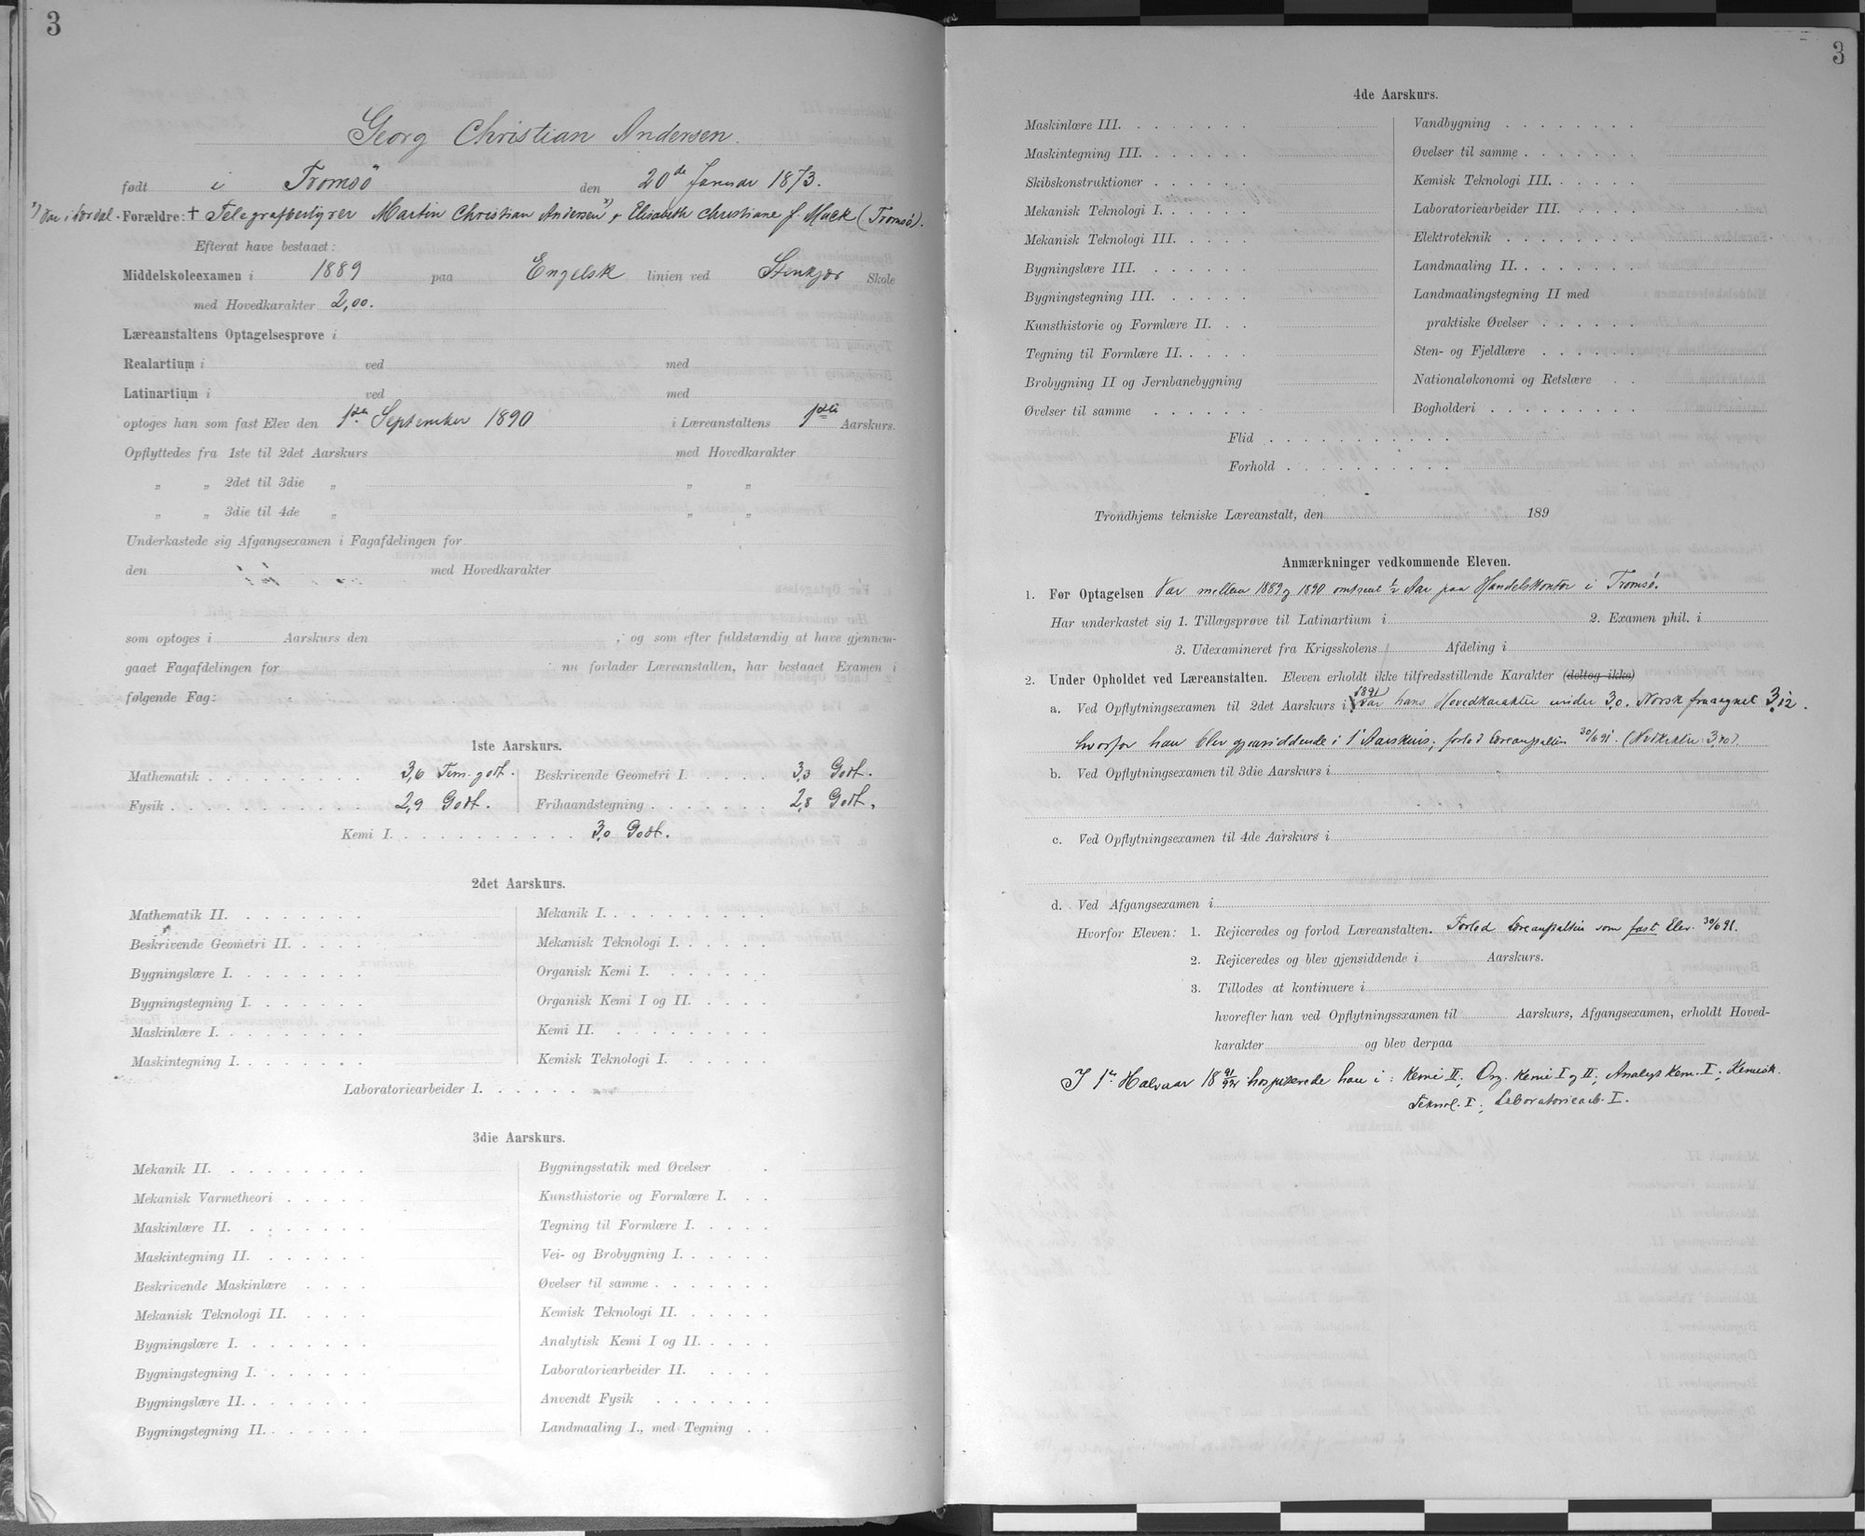 3
Georg Christian Andersen.
født i Tromsö den 20de Januar 1873.
Forældre: † Telegrafbestyrer Martin Christian Andersen *) & Elisabeth Christiane f. Mack (Tromsø).
Efterat have bestaaet:
Middelskoleexamen i 1889 paa Engelsk linien ved Stenkjær Skole
med Hovedkarakter 2,00.
Læreanstaltens Optagelsesprøve i
Realartium i ved med
Latinartium i ved med
optoges han som fast Elev den 1ste September 1890 i Læreanstaltens 1ste Aarskurs.
Opflyttedes fra 1ste til 2det Aarskurs med Hovedkarakter
„ „ 2det til 3die „ „ „
„ „ 3die til 4de „ „ „
Underkastede sig Afgangsexamen i Fagafdelingen for
den med Hovedkarakter
som optoges i Aarskurs den , og som efter fuldstændig at have gjennem-
gaaet Fagafdelingen for nu forlader Læreanstalten, har bestaaet Examen i
følgende Fag:
1ste Aarskurs.
Mathematik 3,6 Tem. godt. Beskrivende Geometri I 3,3 Godt.
Fysik 2,9 Godt. Frihaandstegning 2,8 Godt.
Kemi I. 3,0 Godt.
2det Aarskurs.
Mathematik II. Mekanik I.
Beskrivende Geometri II. Mekanisk Teknologi I.
Bygningslære I. Organisk Kemi I.
Bygningstegning I. Organisk Kemi I og II.
Maskinlære I. Kemi II.
Maskintegning I. Kemisk Teknologi I.
Laboratoriearbeider I.
3die Aarskurs.
Mekanik II. Bygningsstatik med Øvelser
Mekanisk Varmetheori Kunsthistorie og Formlære I.
Maskinlære II. Tegning til Formlære I.
Maskintegning II. Vei- og Brobygning I.
Beskrivende Maskinlære Øvelser til samme
Mekanisk Teknologi II. Kemisk Teknologi II.
Bygningslære I. Analytisk Kemi I og II.
Bygningstegning I. Laboratoriearbeider II.
Bygningslære II. Anvendt Fysik
Bygningstegning II. Landmaaling I., med Tegning
3
4de Aarskurs.
Maskinlære III. Vandbygning
Maskintegning III. Øvelser til samme
Skibskonstruktioner Kemisk Teknologi III.
Mekanisk Teknologi I. Laboratoriearbeider III.
Mekanisk Teknologi III. Elektroteknik
Bygningslære III. Landmaaling II.
Bygningstegning III. Landmaalingstegning II med
Kunsthistorie og Formlære II. praktiske Øvelser
Tegning til Formlære II. Sten- og Fjeldlære
Brobygning II og Jernbanebygning Nationaløkonomi og Retslære
Øvelser til samme Bogholderi
Flid
Forhold
Trondhjems tekniske Læreanstalt, den 189
Anmærkninger vedkommende Eleven.
1. Før Optagelsen Var mellem 1889 og 1890 omtrent ½ Aar paa Handelskontor i Tromsø.
Har underkastet sig 1. Tillægsprøve til Latinartium i 2. Examen phil. i
3. Udexamineret fra Krigsskolens Afdeling i
2. Under Opholdet ved Læreanstalten. Eleven erholdt ikke tilfredsstillende Karakter (deltog ikke)
a. Ved Opflytningsexamen til 2det Aarskurs i 1891 var hans Hovedkarakter under 3,0. Norsk fraregnet 3,12.
hvorfor han blev gjensiddende i 1 Aarskurs; forlod Læreanstalten 30/6 91.
b. Ved Opflytningsexamen til 3die Aarskurs i
c. Ved Opflytningsexamen til 4de Aarskurs i
d. Ved Afgangsexamen i
Hvorfor Eleven: 1. Rejiceredes og forlod Læreanstalten. Forlod Læreanstalten som fast Elev. 30/6 91.
2. Rejiceredes og blev gjensiddende i Aarskurs.
3. Tillodes at kontinuere i
hvorefter han ved Opflytningssxamen til Aarskurs, Afgangsexamen, erholdt Hoved-
karakter og blev derpaa
I 1ste Halvaar 18 91/92 hospiterede han i: Kemi II; Org. Kemi I og II; Analyt Kem. I; Kemisk
Teknol. I; Laboratoriearb. I.